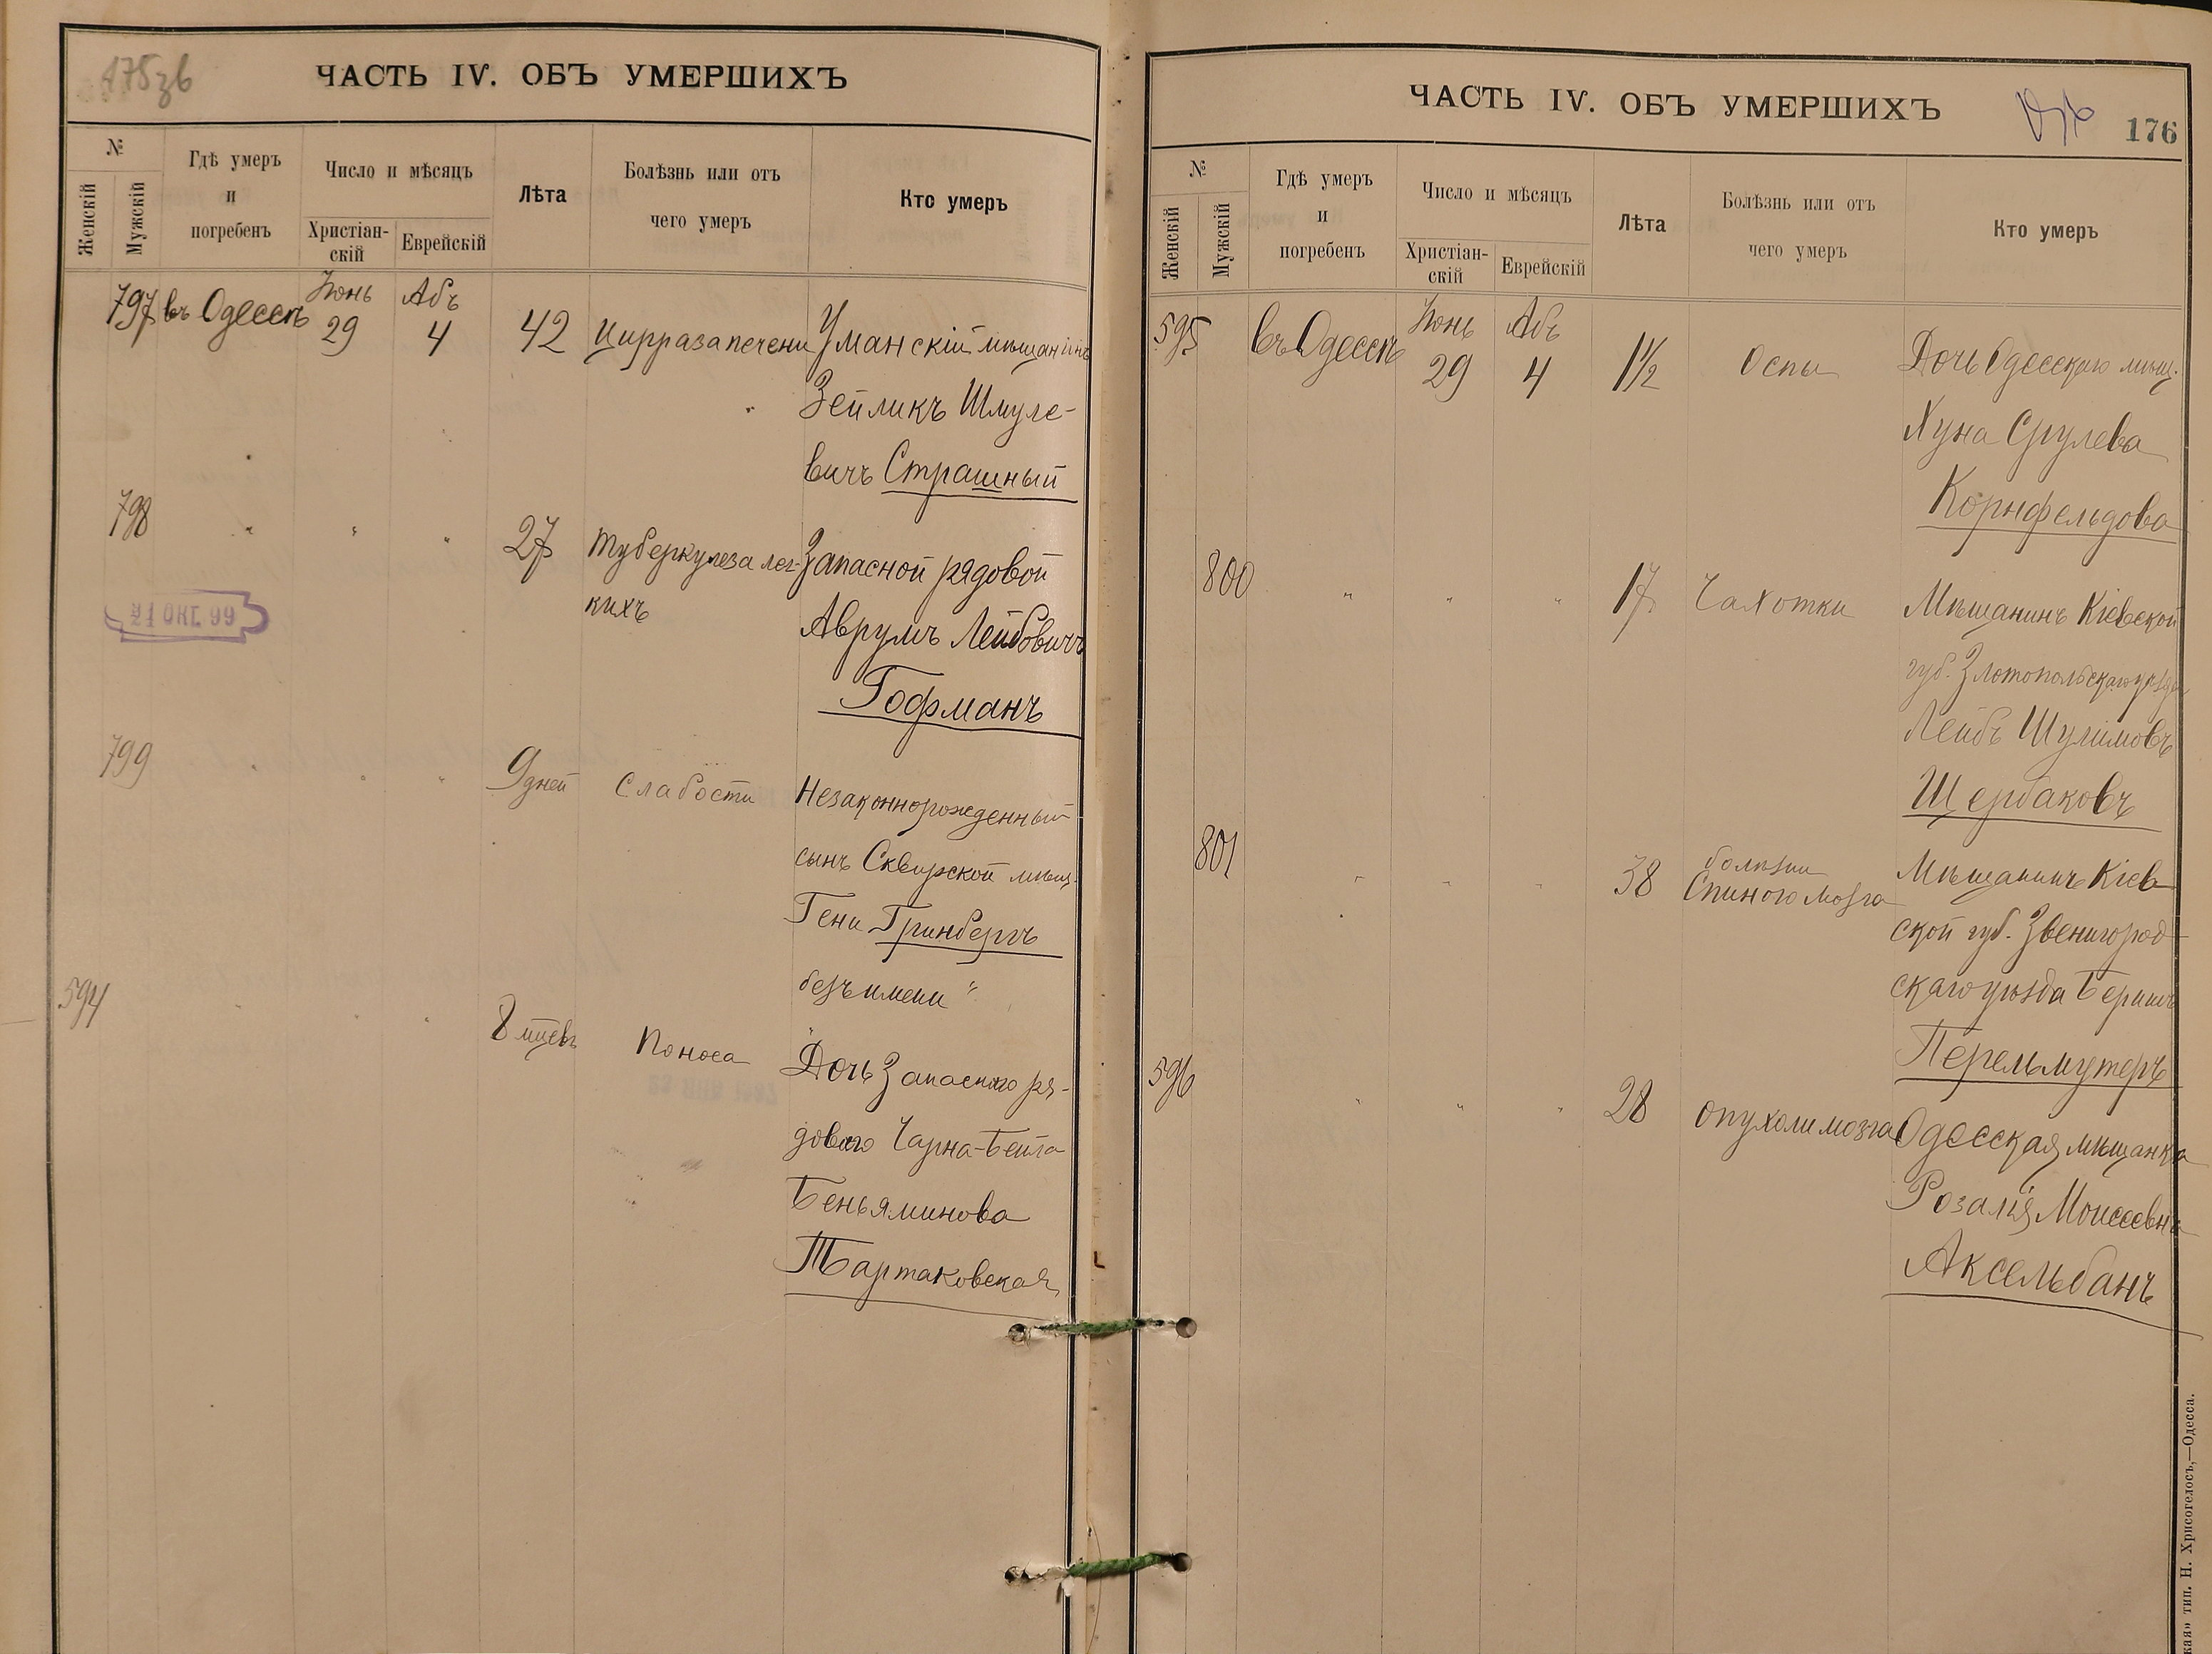 175зв
ЧАСТЬ IV. ОБЪ УМЕРШИХЪ
№
Женскій
Мужскій
Гдѣ умеръ
и
погребенъ
Число и мѣсяцъ
Христіан-
скій
Еврейскій
Лѣта
Болѣзнь или отъ
чего умеръ
Кто умеръ
797 въ Одессѣ Іюнь 29 Абъ 4 42 Цирраза печени Уманскій мѣщанинъ
Зейликъ Шмуле-
вичъ Страшный
798 " " " 27 Туберкулеза лег- Запасной рядовой
кихъ
Аврумъ Лейбовичъ
Гофманъ
21 ОКТ. 99
799 " " " 9 дней Слабости Незаконнорожденный
сынъ Сквирской мѣщ.
Гени Гринбергъ
безъ имени "
594 " " " 8 мцевъ Поноса Дочь Запасного ря-
дового Чарна-Бейла
Беньяминова
Тартаковская
ЧАСТЬ IV. ОБЪ УМЕРШИХЪ
176
№
Женскій
Мужскій
Гдѣ умеръ
и
погребенъ
Число и мѣсяцъ
Христіан-
скій
Еврейскій
Лѣта
Болѣзнь или отъ
чего умеръ
Кто умеръ
595 въ Одессѣ Іюнь 29 Абъ 4 1½ Оспы Дочь Одесскаго мѣщ.
Хуна Срулева
Корнфельдова
800 " " " 17 Чахотки Мѣщанинъ Кіевской
губ. Златопольскаго уѣзда
Лейбъ Шулимовъ
Щербаковъ
801 " " " 38 болѣзни Спиного мозга Мѣщанинъ Кіев
ской губ. Звенигород
скаго уѣзда Беришъ
Перельмутеръ
596 " " " 28 опухоли мозга Одесская мѣщанка
Розалія Моисеевна
Аксельбанъ
кая» тип. Н. Хрисогелосъ,—Одесса.